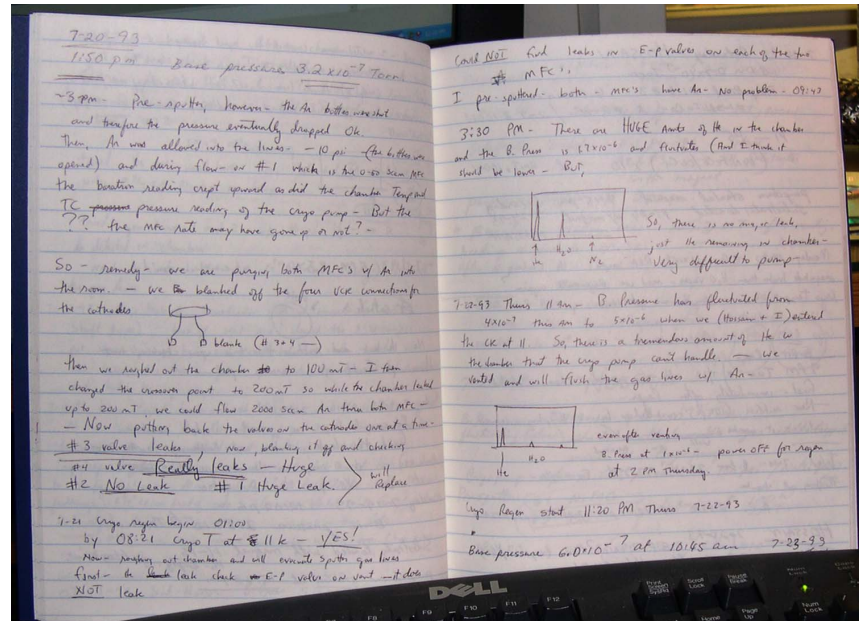 7-20-93
1:50 pm   Base pressure 3.2x10-7 Torr
~3 pm - Pre-sputter, however - the Ar bottles were shut
and therefore the pressure eventually dropped Ok
Then, Ar was allowed into the lines - ~10 psi (the bottles were
opened) and during flow - on #1 which is the 0-50 sccm MFC
the baratron reading crept upward as did the chamber Temp and
TC pressure reading of the cryo pump - But the
?? the MFC rate may have gone up or not? -
So - remedy - we are purging both MFC's w/ Ar into
the room. - we blanked off the four VCR connections for
the cathodes
blank (# 3+4 -)
then we roughed out the chamber to 100 mT - I then
changed the crossover point to 200 mT so while the chamber leaked
up to 200 mT, we could flow 2000 sccm Ar thru both MFC -
- Now putting back the valves on the cathodes one at a time -
#3 valve leaks, now, blanking it off and checking
#4 valve Really leaks - Huge
#2 No Leak   #1 Huge Leak.
will Replace
7-21 Cryo regen begin 01:00
by 08:21 Cryo T at 11 k - YES!
Now - roughing out chamber and will evacuate sputter gas lines
first - the leak check E-P valve on vent - it does
NOT leak
Could NOT find leaks in E-p valves on each of the two
MFC's.
I pre-sputtered - both - MFC's have Ar - No problem - 09:43
3:30 PM - There are HUGE Amts of He in the chamber
and the B. Press is 1.7x10-6 and fluctuates (And I think it
should be lower - But,
He   H2O   N2
So, there is no major leak,
just He remaining in chamber -
very difficult to pump -
7-22-93 Thurs 11 Am - B. Pressure has fluctuated from
4x10-7 this Am to 5x10-6 when we (+ I) entered
the CR at 11. So, there is a tremendous amount of He in
the chamber that the cryo pump can't handle. - We
vented and will flush the gas lines w/ Ar -
He   H2O
even after venting
B. Press at 1x10-6 - power OFF for regen
at 2 PM Thursday.
Cryo. Regen start 11:20 PM Thurs 7-22-93
Base pressure 6.0x10-7 at 10:45 am   7-23-93
DELL
F8 F9 F10 F11 F12
Print Screen SysRq
Scroll Lock
Pause Break
Num Lock
Home
Page Up
Num Lock